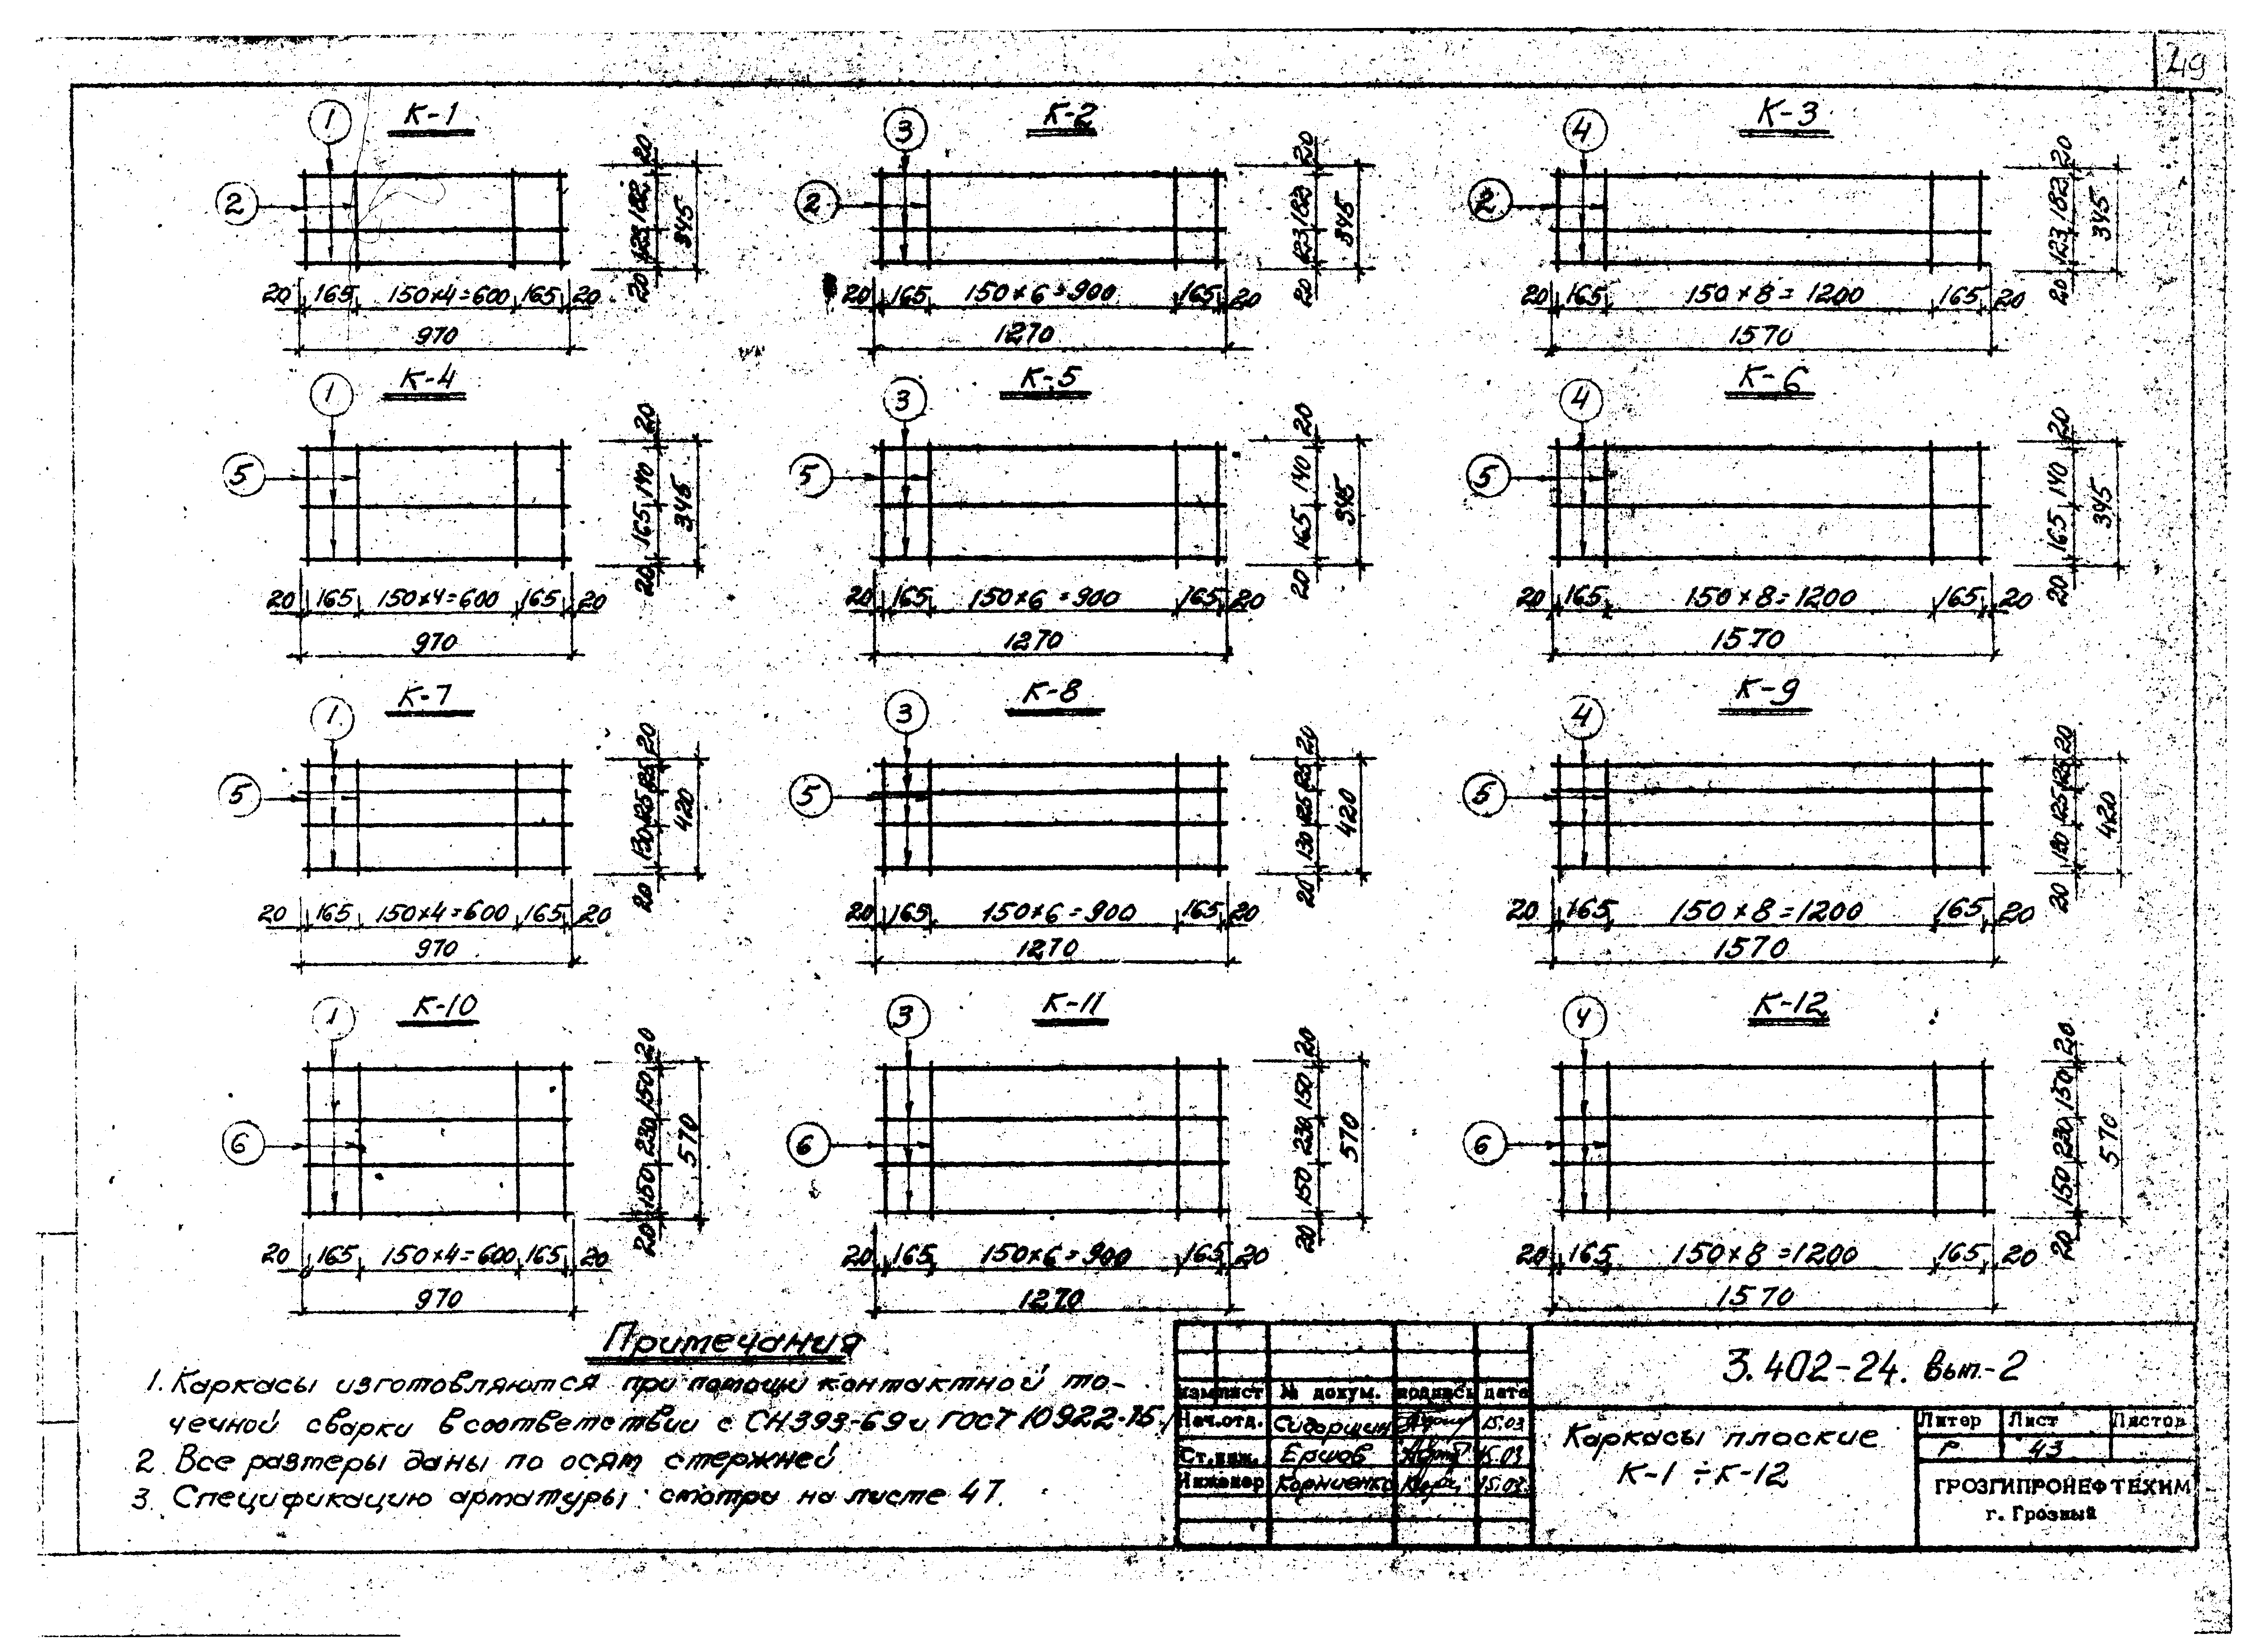 49
К-1
1
2
20 182 123 20
345
20 165 150×4=600 165 20
970
К-2
3
2
20 182 123 20
345
20 165 150×6=900 165 20
1270
К-3
4
2
20 182 123 20
345
20 165 150×8=1200 165 20
1570
К-4
1
5
20 140 165 20
345
20 165 150×4=600 165 20
970
К-5
3
5
20 140 165 20
345
20 165 150×6=900 165 20
1270
К-6
4
5
20 140 165 20
345
20 165 150×8=1200 165 20
1570
К-7
1
5
20 125 125 130 20
420
20 165 150×4=600 165 20
970
К-8
3
5
20 125 125 130 20
420
20 165 150×6=900 165 20
1270
К-9
4
5
20 125 125 130 20
420
20 165 150×8=1200 165 20
1570
К-10
1
6
20 150 230 150 20
570
20 165 150×4=600 165 20
970
К-11
3
6
20 150 230 150 20
570
20 165 150×6=900 165 20
1270
К-12
4
6
20 150 230 150 20
570
20 165 150×8=1200 165 20
1570
Примечания
1. Каркасы изготовляются при помощи контактной то-
чечной сварки в соответствии с СН393-69 и ГОСТ 10922-75.
2 Все размеры даны по осям стержней.
3. Спецификацию арматуры смотри на листе 47.
изм лист № докум. подпись дата
Нач.отд. Сидоршин 15.03
Ст.инж. Ершов 15.03
Инженер Корниенко 15.03.
3.402-24. Вып.-2
Каркасы плоские
К-1 ÷ К-12
Литер Лист Листов
Р. 43
ГРОЗГИПРОНЕФТЕХИМ
г. Грозный